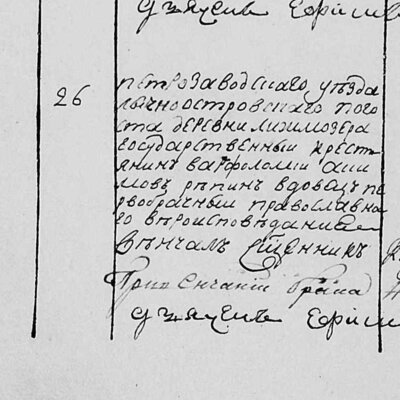 дьячекъ Ефимъ
26
петрозаводскаго уѣзда
лычноостровскаго пого
ста деревни лижмозера
государственный крест
янинъ варфоломей аки
мовъ рѣпинъ вдовацъ пе
рвобрачный православна
го вѣроисповѣдания
Вѣнчалъ Сщенникъ
При вѣнчаніи
дьячекъ Ефимъ